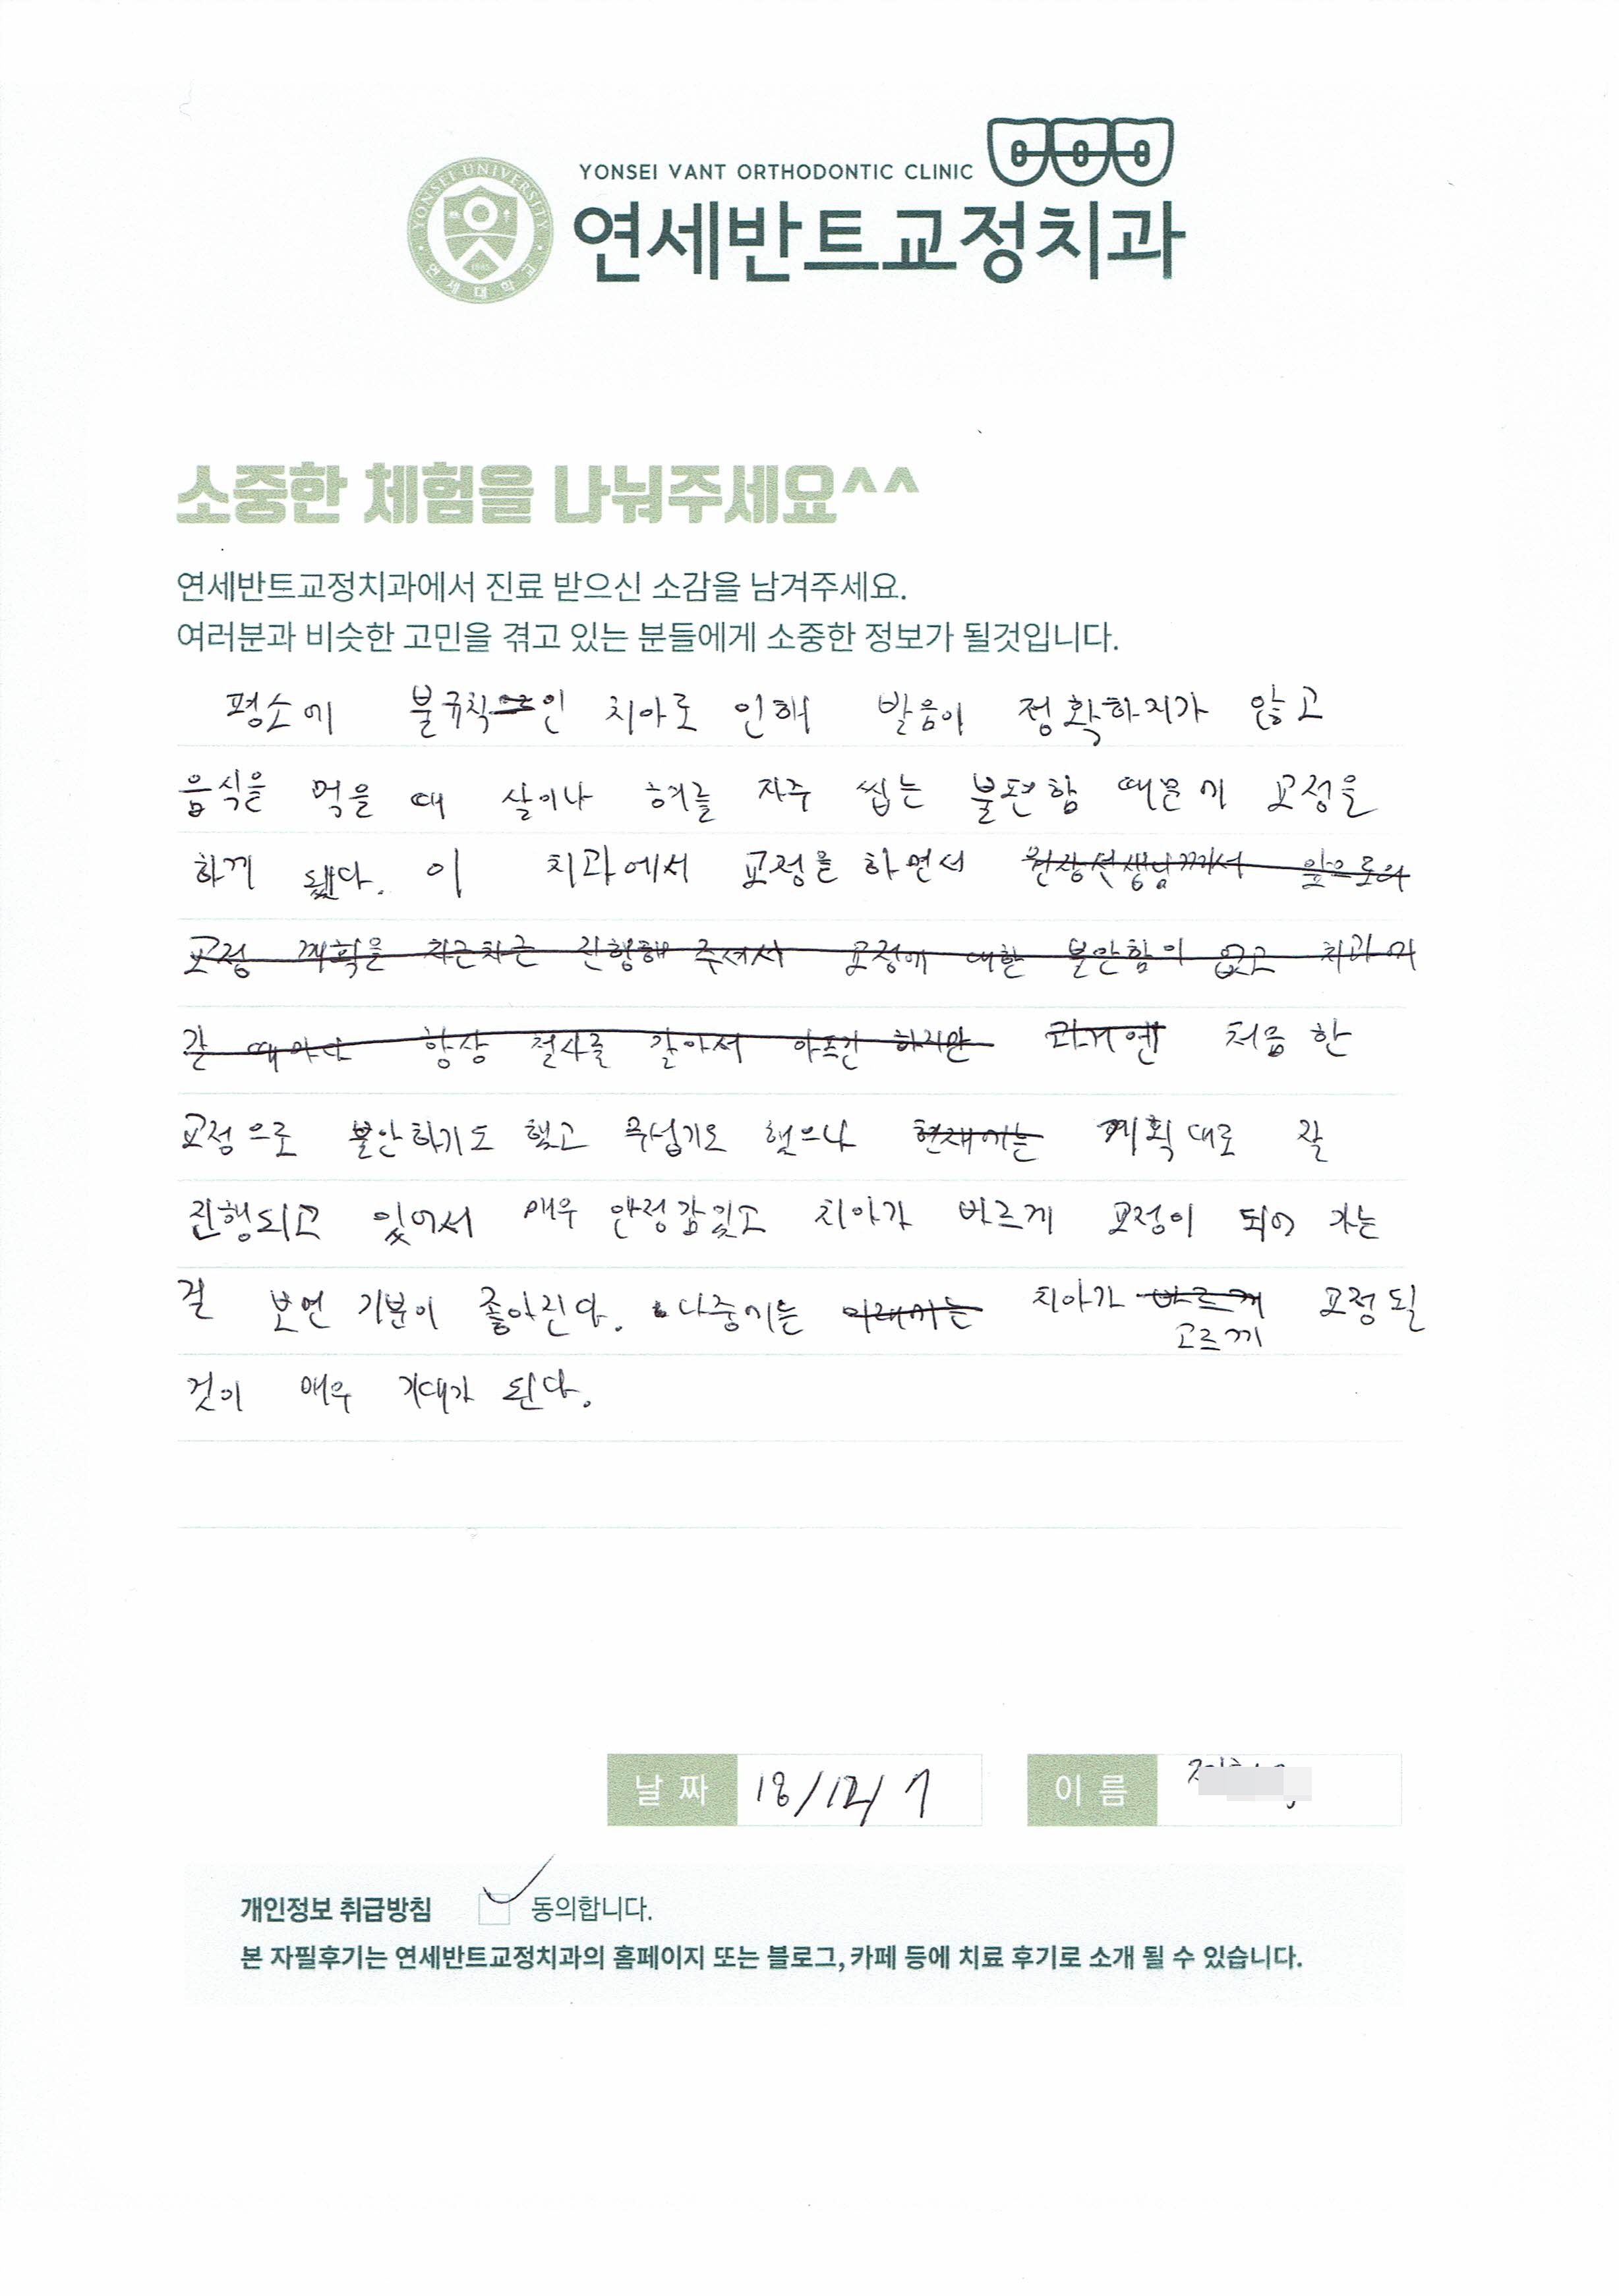 YONSEI VANT ORTHODONTIC CLINIC
연세반트교정치과
YONSEI UNIVERSITY
연세대학교
소중한 체험을 나눠주세요^^
연세반트교정치과에서 진료 받으신 소감을 남겨주세요.
여러분과 비슷한 고민을 겪고 있는 분들에게 소중한 정보가 될것입니다.
평소에 불규칙인 치아로 인해 발음이 정확하지가 않고
음식을 먹을 때 살이나 혀를 자주 씹는 불편함 때문에 교정을
하게 됐다. 이 치과에서 교정을 하면서 원장선생님께서 앞으로의
교정 계획을 차근차근 진행해 주셔서 교정에 대한 불안함이 없고 치과에
갈 때마다 항상 철사를 갈아서 아프긴 하지만 과거엔 처음 한
교정으로 불안하기도 했고 무섭기도 했으나 현재에는 계획대로 잘
진행되고 있어서 매우 안정감있고 치아가 바르게 교정이 되어 가는
걸 보면 기분이 좋아진다. 나중에는 미래에는 치아가 바르게 교정될
고르게
것이 매우 기대가 된다.
날짜 18/12/7 이름
개인정보 취급방침 동의합니다.
본 자필후기는 연세반트교정치과의 홈페이지 또는 블로그, 카페 등에 치료 후기로 소개 될 수 있습니다.